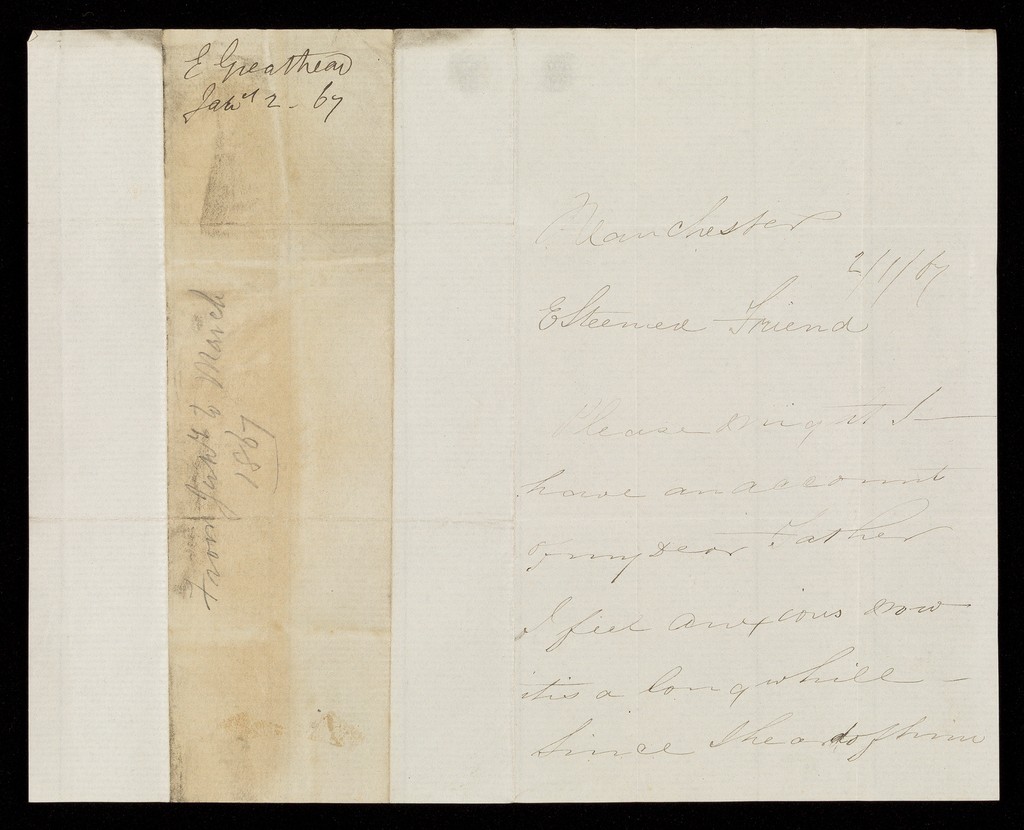 E Greathead
Jany 2 - 67
From Jany to March
1867
Manchester
2/1/67
Esteemed Friend
Please might I
have an account
of my dear Father
I feel anxious now
itis a long while -
since I heard of him